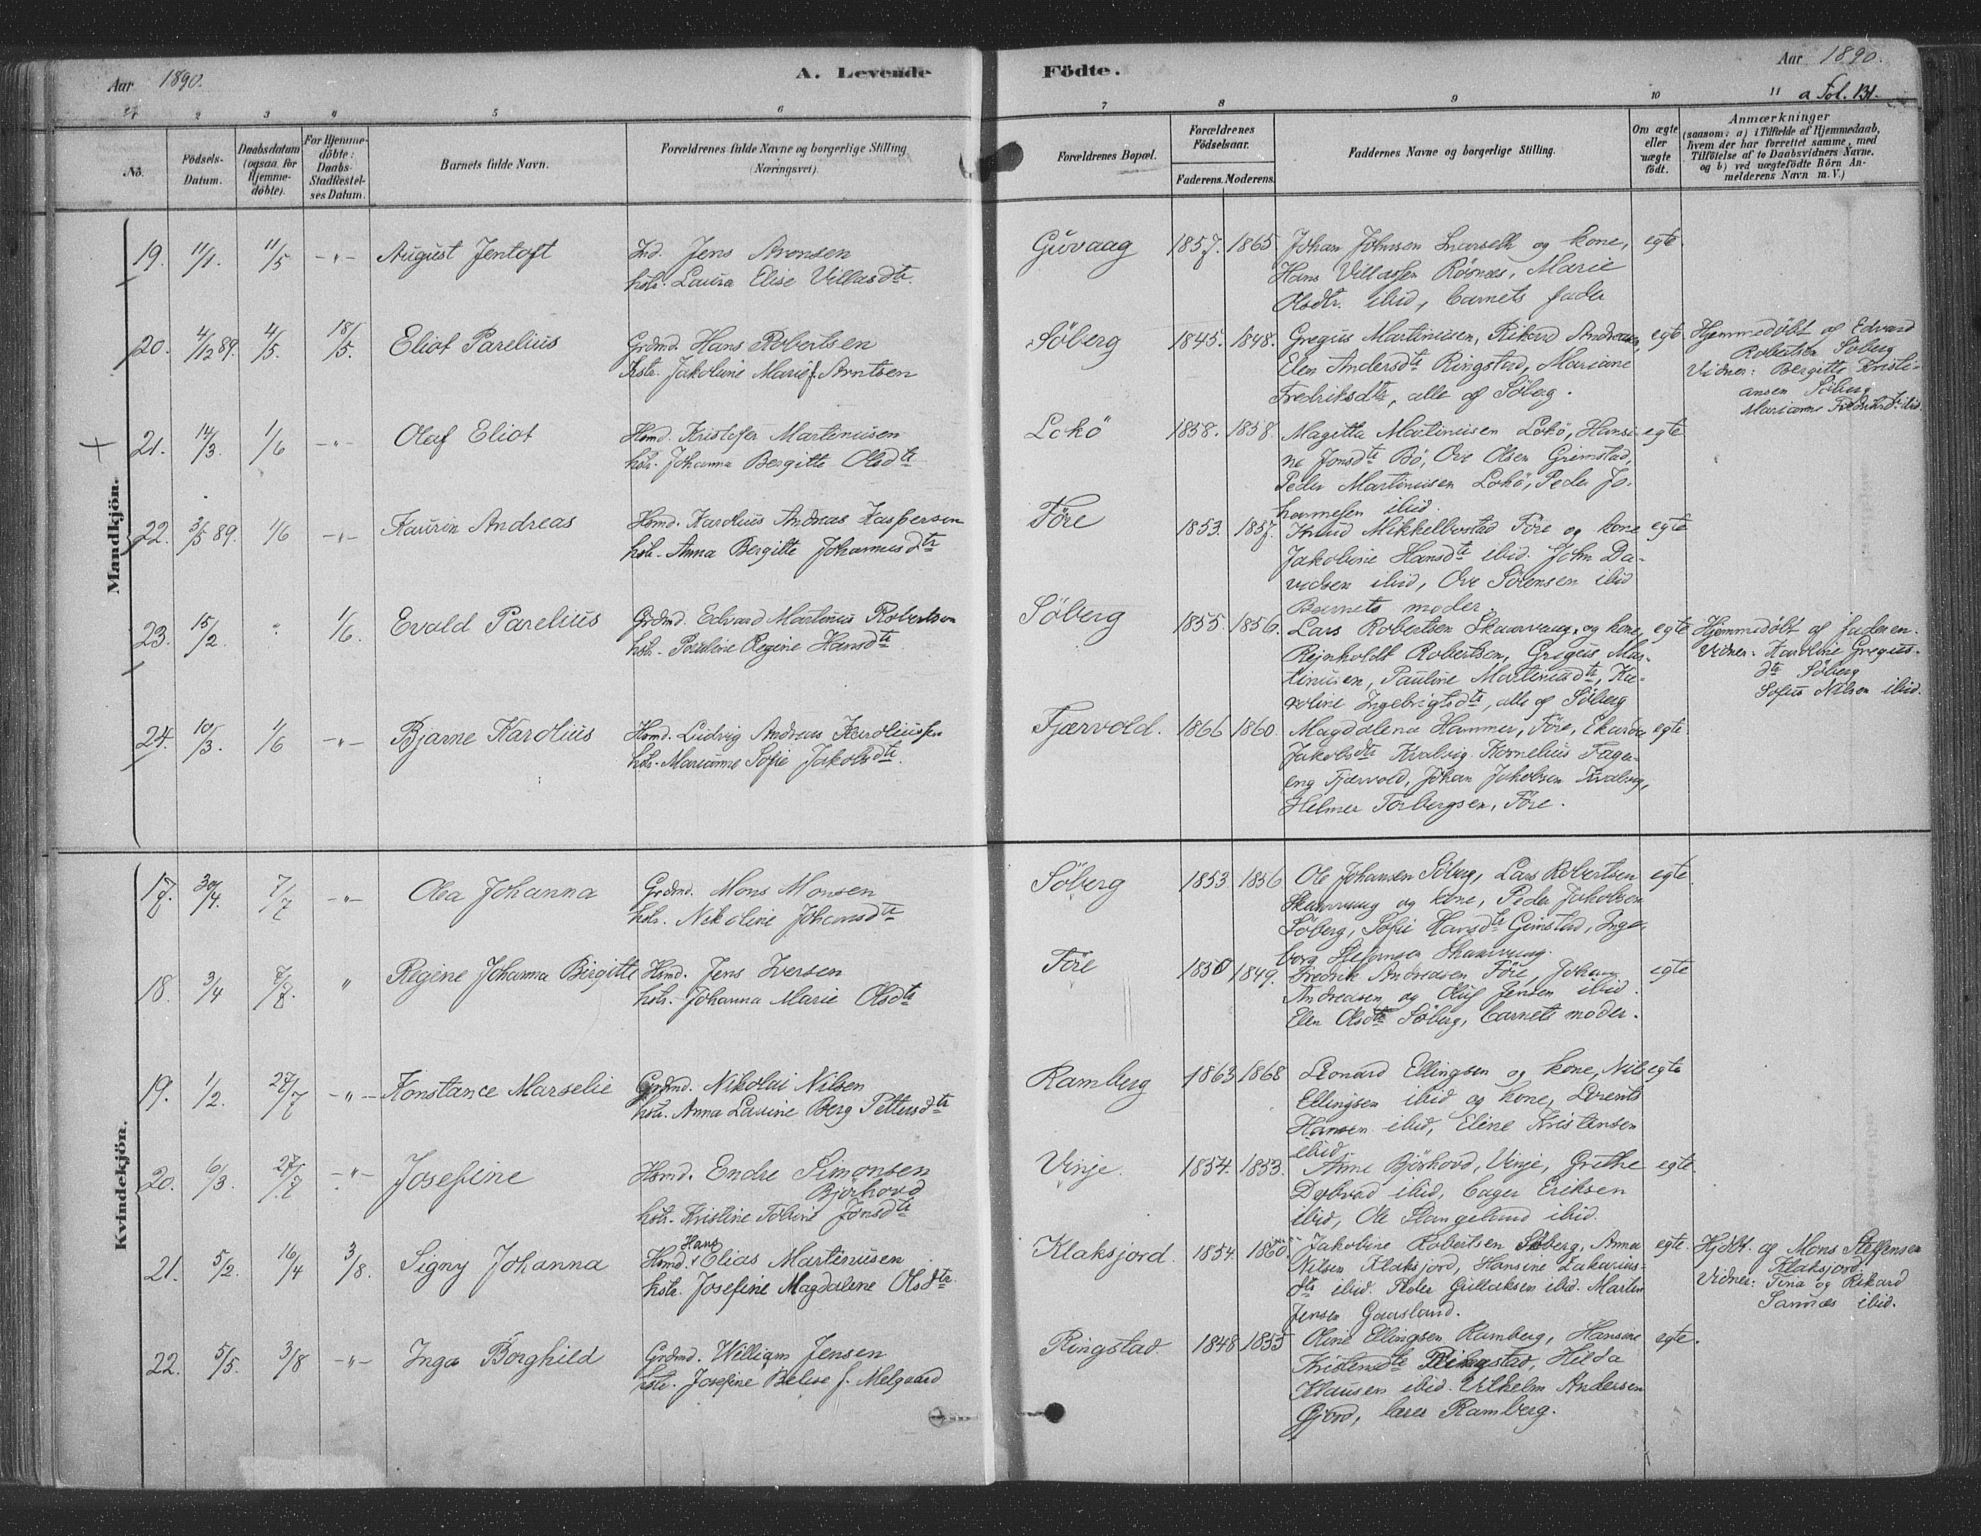 Aar 1890.
A. Levende Födte.
Aar 1890.
a Fol. 131.
1 2 3 4 5 6 7 8 9 10 11
No.
Födsels-Datum.
Daabsdatum (ogsaa for Hjemme-döbte).
For Hjemme-döbte: Daabs-Stadfæstel-ses Datum.
Barnets fulde Navn.
Forældrenes fulde Navne og borgerlige Stilling (Næringsvei)
Forældrenes Bopæl.
Forældrenes Födselsaar.
Faderens. Moderens.
Faddernes Navne og borgerlige Stilling.
Om ægte eller uægte födt.
Anmærkninger
(saasom: a) i Tilfælde af Hjemmedaab, hvem der har forrettet samme, med Tilföielse af to Daabsvidners Navne. og b) ved uægtefödte Börn Anmelderens Navn m. V.)
Mandkjön.
19. 11/1. 11/5 -„- August Jentoft
Ind. Jens Aronsen
hstr. Laura Elise Villasdtr.
Guvaag 1857. 1865.
Johan Johnsen og kone,
Hans Rösnes, Marie
Olsdtr. ibid, barnets fader
egte
20. 4/12 89. 4/5. 18/5. Eliot Parelius
Grdmd. Hans Robertsen
hstr. Jakobine Marie f. Arntsen
Söberg 1845. 1848.
Gregus Martinusen, Rikard Andreasen,
Elen Andersdtr Ringstad, Mariane
Fredriksdtr, alle af Söberg.
egte
Hjemmedöbt af Edvard
Robertsen Söberg
Vidner: Bergitte Kristi-
ansen Söberg
Marianne Fredriksdtr ibid
21. 14/3. 1/6 -„- Olaf Eliot
Hsmd. Kristofer Martinusen
hstr. Johanna Bergitte Olsdtr
Lokö 1858. 1858.
Magitta Martinusen Lokö, Hansi-
ne Jonsdtr Bö, Ove Olsen Grimstad,
Peder Martinusen Lokö, Peder Jo-
hannesen ibid.
egte
22. 3/5 89. 1/6 -„- Kaurin Andreas
Hsmd. Karolius Andreas Kaspersen
hstr. Anna Bergitte Johannesdtr
Före 1853. 1857.
Knud Mikkelbostad Före og kone
Jakobine Hansdtr ibid. John Da-
vidsen ibid, Ove Sörensen ibid
Barnets moder.
egte
23. 15/2. „ 1/6. Evald Parelius
Grdmd. Edvard Martinus Robertsen
hstr. Pauline Regine Hansdtr
Söberg 1855 1856.
Lars Robertsen Skaarvaag og kone,
Reinholdt Robertsen, Gregus Mar-
tinusen, Pauline Martinusdtr, Ka-
roline Ingebrigtsdtr, alle af Söberg
egte
Hjemmedöbt af faderen.
Vidner: Karoline Gregus-
dtr Söberg
Sofus Nilsen ibid.
24. 10/3. 1/6 -„- Bjarne Karolius
Hsmd. Ludvig Andreas Karoliussen
hstr. Marianne Sofie Jakobsdtr.
Fjærvold. 1866 1860.
Magdalena Hammer, Före,
Jakobsdtr Kvalvig. Kornelius Fager-
eng Fjærvold, Johan Jakobsen Kvalvig,
Helmer Torbergsen, Före.
egte.
Kvindekjön.
17. 30/4. 7/7 -„- Olea Johanna
Grdmd. Mons Monsen
hstr. Nikoline Johansdtr
Söberg 1853 1856
Ole Johansen Söberg, Lars Robertsen
Skaarvaag og kone, Peder Jakobsen
Söberg, Sofie Hansdtr Gimstad, Inge-
borg Skaarvaag.
egte.
18. 3/4 7/8. „ Regine Johanna Birgitte
Hsmd. Jens Iversen
hstr. Johanna Marie Olsdtr
Före 1850 1849.
Fredrik Andreasen Före, Johan
Andreasen og Oluf Jensen ibid.
Elen Olsdtr Söberg, barnets moder.
egte
19. 1/2. 27/7 -„- Konstance Marselie
Grdmd. Nikolai Nilsen
hstr. Anna Lavine Berg Pettersdtr
Ramberg 1863 1868
Leonard Ellingsen og kone, Nils
Ellingsen ibid og kone, Lorents
Hansen ibid, Eline Kristensen
ibid
egte
20. 6/3. 27/7 -„- Josefine
Hsmd. Endre Simonsen
Björhovd
hstr. Kristine Tobine Jonsdtr
Vinje. 1854. 1853.
Anne Björhovd, Vinje, Grethe
ibid, Eriksen
ibid, Ole Stangeland ibid.
egte.
21. 5/2. 16/4 3/8. Signy Johanna
Hsmd. Hans Elias Martinusen
hstr. Josefine Magdalene Olsdtr.
Klaksjord 1854. 1860.
Jakobine Robertsen Söberg, Anna
Nilsen Klaksjord, Hansine Zakarias-
dtr ibid. Peder Gullaksen ibid. Martin
Jensen Gaasland.
egte.
Hjdbt. af Mons Steffensen
Klaksjord.
Vidner: Tina og Rikard
Sannes ibid.
22. 5/5. 3/8 -„- Inga Borghild
Grdmd. William Jensen
hstr. Josefine Belise f. Melgaard
Ringstad 1848 1855
Oline Ellingsen Ramberg, Hansine
Kristensdtr Ringstad, Hilda
Klausen ibid. Vilhelm Andersen
Gjerd, lærer Ramberg.
egte.